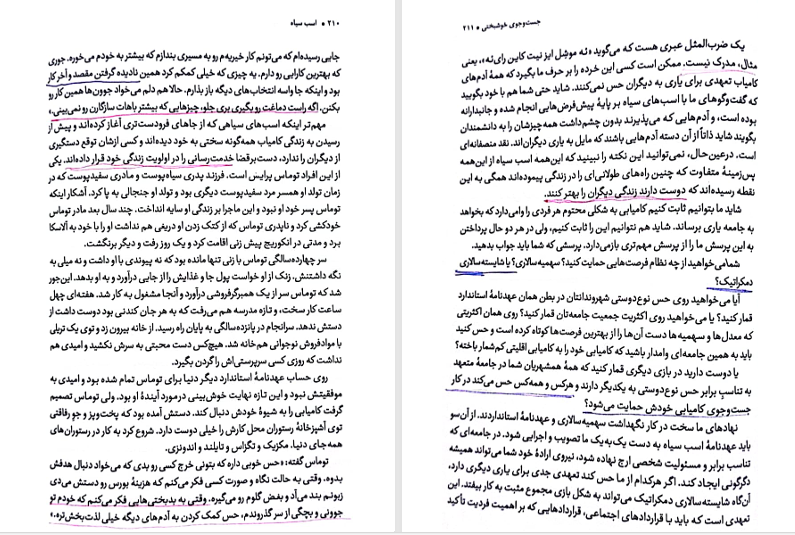 ۲۱۰ • اسب سیاه
جایی رسیده‌ام که می‌تونم کار خیریه‌م رو به مسیری بندازم که بیشتر به خودم می‌خوره. جوری
که بهترین کارایی رو دارم. یه چیزی که خیلی کمکم کرد همین نادیده گرفتن مقصد و آخر کار
بود و اینکه جا واسه انتخاب‌های دیگه باز بذارم. حالا هم دلم می‌خواد جوون‌ها همین کار رو
بکنن. اگه راست دماغت رو بگیری بری جلو، چیزهایی که بیشتر باهات سازگارن رو نمی‌بینی.»
مهم‌تر اینکه اسب‌های سیاهی که از جاهای فرودست‌تری آغاز کرده‌اند و پیش از
رسیدن به زندگی کامیاب همه‌گونه سختی به خود دیده‌اند و کسی ازشان توقع دستگیری
از دیگران را ندارد، دست‌برقضا خدمت‌رسانی را در اولویت زندگی خود قرار داده‌اند. یکی
از این افراد توماس پرایس است. فرزند پدری سیاه‌پوست و مادری سفیدپوست که در
زمان تولد او همسر مرد سفیدپوست دیگری بود و تولد او جنجالی به پا کرد. آشکار اینکه
توماس پسر خود او نبود و این ماجرا بر زندگی او سایه انداخت. چند سال بعد مادر توماس
خودکشی کرد و ناپدری توماس که از کتک زدن او دریغی هم نداشت او را با خود به آلاسکا
برد و مدتی در انکوریج پیش زنی اقامت کرد و یک روز رفت و دیگر برنگشت.
سر چهارده‌سالگی توماس با زنی تنها مانده بود که نه پیوندی با او داشت و نه میلی به
نگه داشتنش. زنک از او خواست پول جا و غذایش را از جایی درآورد و به او بدهد. این‌جور
شد که توماس سر از یک همبرگرفروشی درآورد و آنجا مشغول به کار شد. هفته‌ای چهل
ساعت کار سخت، و تازه مدرسه هم می‌رفت که به هر جان کندنی بود دوست داشت از
دستش ندهد. سرانجام در پانزده‌سالگی به پایان راه رسید. از خانه بیرون زد و توی یک تریلی
با موادفروش نوجوانی هم‌خانه شد. هیچ‌کس دست محبتی به سرش نکشید و امیدی هم
نداشت که روزی کسی سرپرستی‌اش را گردن بگیرد.
روی حساب عهدنامهٔ استاندارد دیگر دنیا برای توماس تمام شده بود و امیدی به
موفقیتش نبود و این تازه نهایت خوش‌بینی درمورد آیندهٔ او بود. ولی توماس تصمیم
گرفت کامیابی را به شیوهٔ خودش دنبال کند. دستش آمده بود که پخت‌وپز و جو رفاقتی
توی آشپزخانهٔ رستوران محل کارش را خیلی دوست دارد. شروع کرد به کار در رستوران‌های
همه‌جای دنیا. مکزیک و تگزاس و تایلند و اندونزی.
توماس گفته: «حس خوبی داره که بتونی خرج کسی رو بدی که می‌خواد دنبال هدفش
بدوه. وقتی به حالت نگاه و صورت کسی فکر می‌کنم که هزینهٔ بورس رو دستش می‌دی
زبونم بند می‌آد و بغض گلوم رو می‌گیره. وقتی به بدبختی‌هایی فکر می‌کنم که خودم تو
جوونی و بچگی از سر گذروندم، حس کمک کردن به آدم‌های دیگه خیلی لذت‌بخش‌تره.»
جست‌وجوی خوشبختی • ۲۱۱
یک ضرب‌المثل عبری هست که می‌گوید «نه موشل ایز نیت کاین رای‌نه»، یعنی
مثال، مدرک نیست. ممکن است کسی این خرده را بر حرف ما بگیرد که همهٔ آدم‌های
کامیاب تعهدی برای یاری به دیگران حس نمی‌کنند. شاید حتی شما هم با خود بگویید
که گفت‌وگوهای ما با اسب‌های سیاه بر پایهٔ پیش‌فرض‌هایی انجام شده و جانبدارانه
بوده است، و آدم‌هایی که می‌پذیرند بدون چشم‌داشت همه‌چیزشان را به دانشمندان
بگویند شاید ذاتاً از آن دسته آدم‌هایی باشند که مایل به یاری دیگران‌اند. نقد منصفانه‌ای
است. درعین‌حال، نمی‌توانید این نکته را نبینید که این‌همه اسب سیاه از این‌همه
پس‌زمینهٔ متفاوت که چنین راه‌های طولانی‌ای را در زندگی پیموده‌اند همگی به این
نقطه رسیده‌اند که دوست دارند زندگی دیگران را بهتر کنند.
شاید ما بتوانیم ثابت کنیم کامیابی به شکلی محتوم هر فردی را وامی‌دارد که بخواهد
به جامعه یاری برساند. شاید هم نتوانیم این را ثابت کنیم، ولی در هر دو حال پرداختن
به این پرسش ما را از پرسش مهم‌تری بازمی‌دارد. پرسشی که شما باید جواب بدهید.
شما می‌خواهید از چه نظام فرصت‌هایی حمایت کنید؟ سهمیه‌سالاری؟ یا شایسته‌سالاری
دمکراتیک؟
آیا می‌خواهید روی حس نوع‌دوستی شهروندانتان در بطن همان عهدنامهٔ استاندارد
قمار کنید؟ یا می‌خواهید روی اکثریت جمعیت جامعه‌تان قمار کنید؟ روی همان اکثریتی
که معدل‌ها و سهمیه‌ها دست آن‌ها را از بهترین فرصت‌ها کوتاه کرده است و حس کنید
باید به همین جامعه‌ای وامدار باشید که کامیابی خود را به کامیابی اقلیتی کم‌شمار باخته؟
یا دوست دارید در بازی دیگری قمار کنید که همهٔ همشهریان شما در جامعهٔ متعهد
به تناسب برابر حس نوع‌دوستی به یکدیگر دارند و هرکس و همه‌کس حس می‌کند در کار
جست‌وجوی کامیابی خودش حمایت می‌شود؟
نهادهای ما سخت در کار نگهداشت سهمیه‌سالاری و عهدنامهٔ استانداردند. از آن‌سو
باید عهدنامهٔ اسب سیاه به دست یک‌به‌یک ما تصویب و اجرایی شود. در جامعه‌ای که
تناسب برابر و مسئولیت شخصی ارج نهاده شود، نیروی ارادهٔ خود شما می‌تواند همیشه
دگرگونی ایجاد کند. اگر هرکدام از ما حس کند تعهدی جدی برای یاری دیگری دارد،
آن‌گاه شایسته‌سالاری دمکراتیک می‌تواند به شکل بازی مجموع مثبت به کار بیفتد. این
تعهدی است که باید با قراردادهای اجتماعی، قراردادهایی که بر اهمیت فردیت تأکید